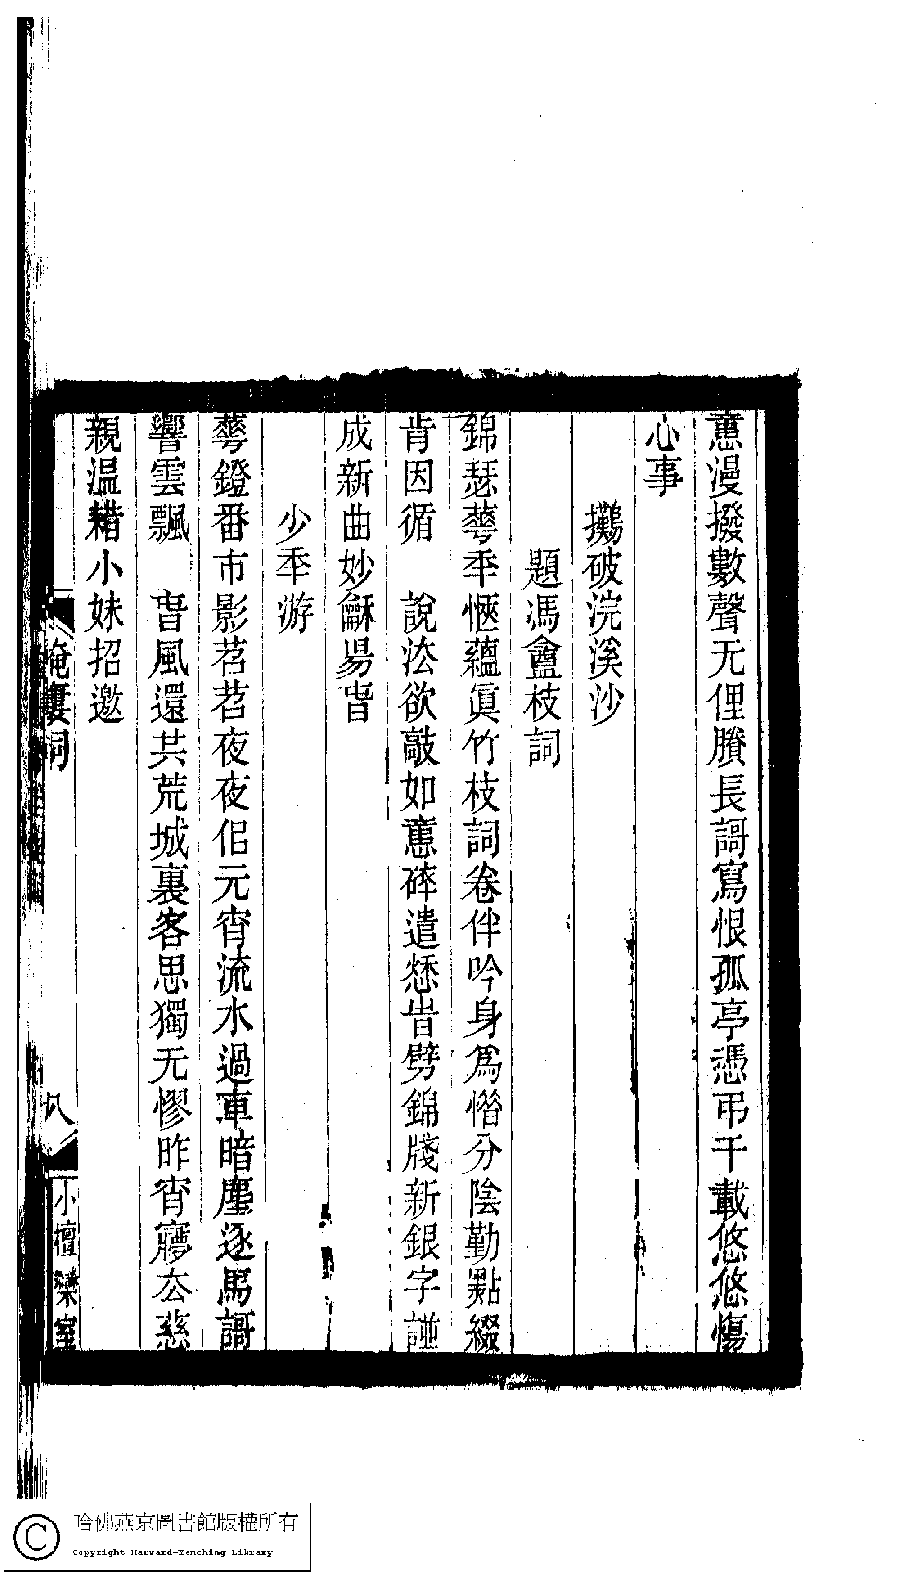 憙漫撥數聲无俚賸長謌寫恨孤亭憑弔千載悠悠傷
心事
攤破浣溪沙
題馮盦枝詞
錦瑟蕚秊愜蘊眞竹枝詞卷伴吟身爲惜分陰勤點綴
肯因循　說法欲敲如意碎遣愁旹劈錦牋新銀字譜
成新曲妙龢昜旾
少秊游
蕚鐙番市影苕苕夜夜侣元宵流水過車暗塵逐馬謌
響雲飄　旾風還共荒城裏客思獨无憀昨宵寢厺慈
親温糙小妹招邀
淹
詞
八
小檀欒室
哈佛燕京圖書館版權所有
Copyright Harvard-Yenching Library